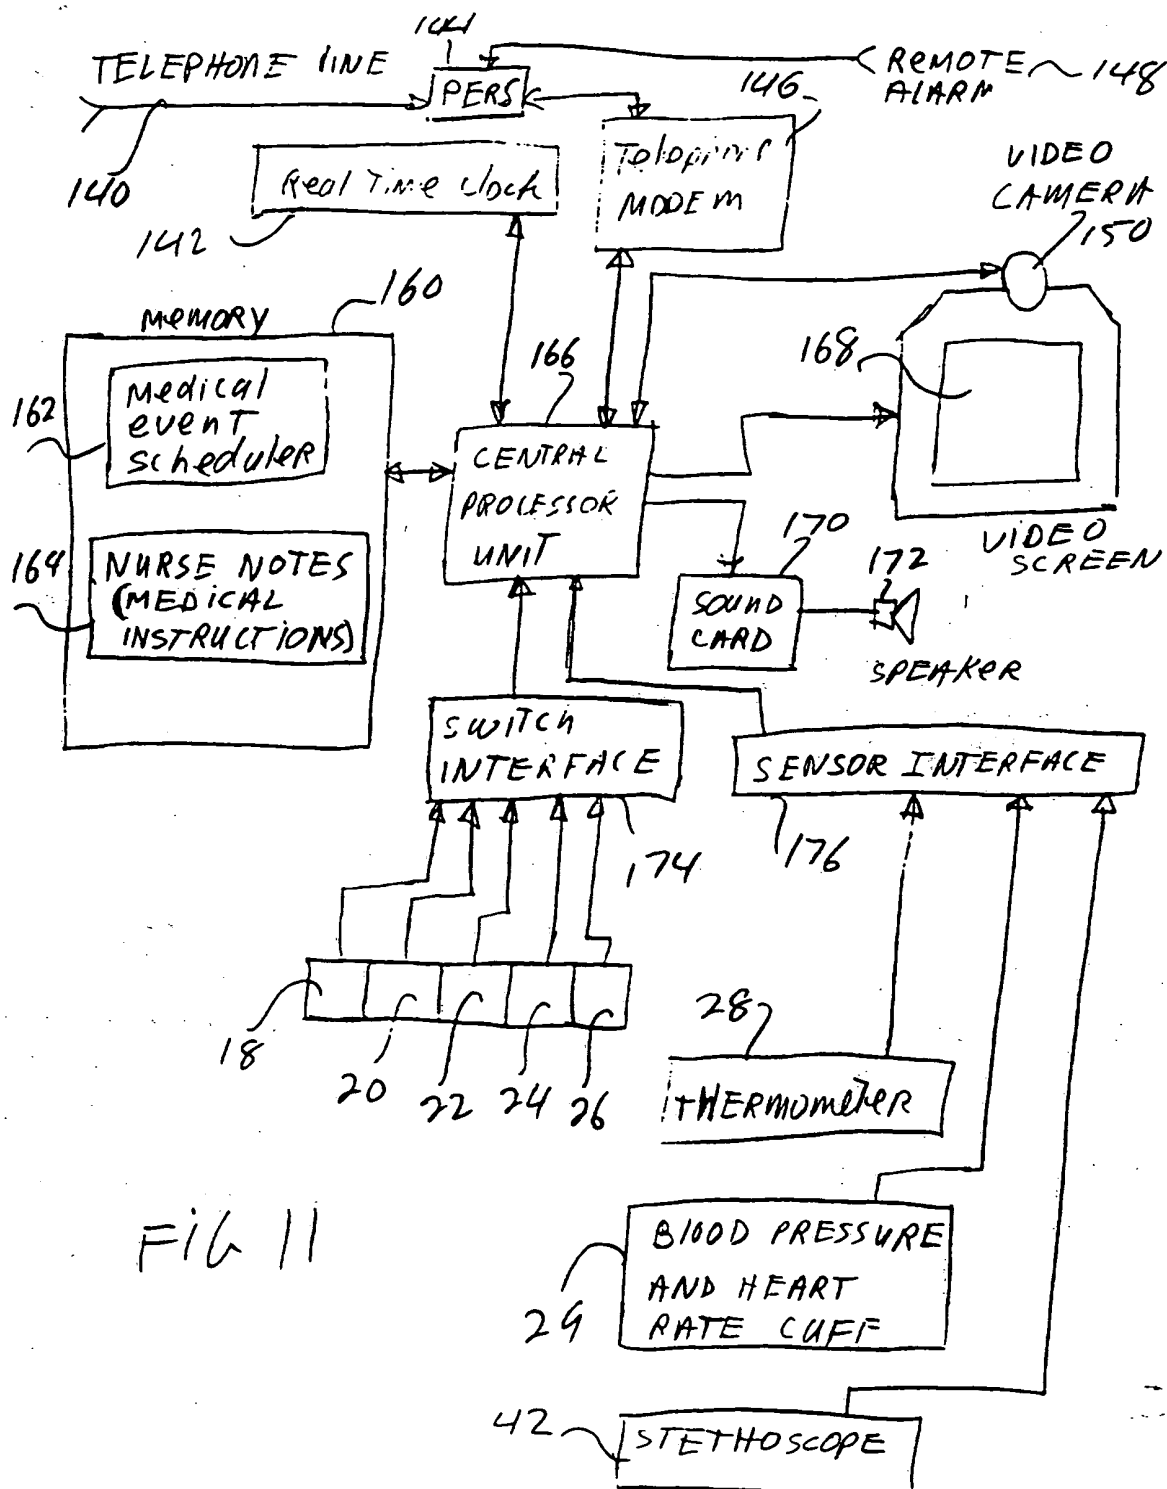 144
TELEPHONE LINE
PERS
REMOTE
ALARM
148
146
140
Real Time Clock
MODEM
VIDEO
CAMERA
150
142
160
MEMORY
166
168
162
Medical
event
Scheduler
CENTRAL
PROCESSOR
UNIT
170
172
VIDEO
SCREEN
164
NURSE NOTES
(MEDICAL
INSTRUCTIONS)
SOUND
CARD
SPEAKER
SWITCH
INTERFACE
SENSOR INTERFACE
174
176
18
20
22
24
26
28
THERMOMETER
FIG 11
BLOOD PRESSURE
AND HEART
RATE CUFF
29
42
STETHOSCOPE